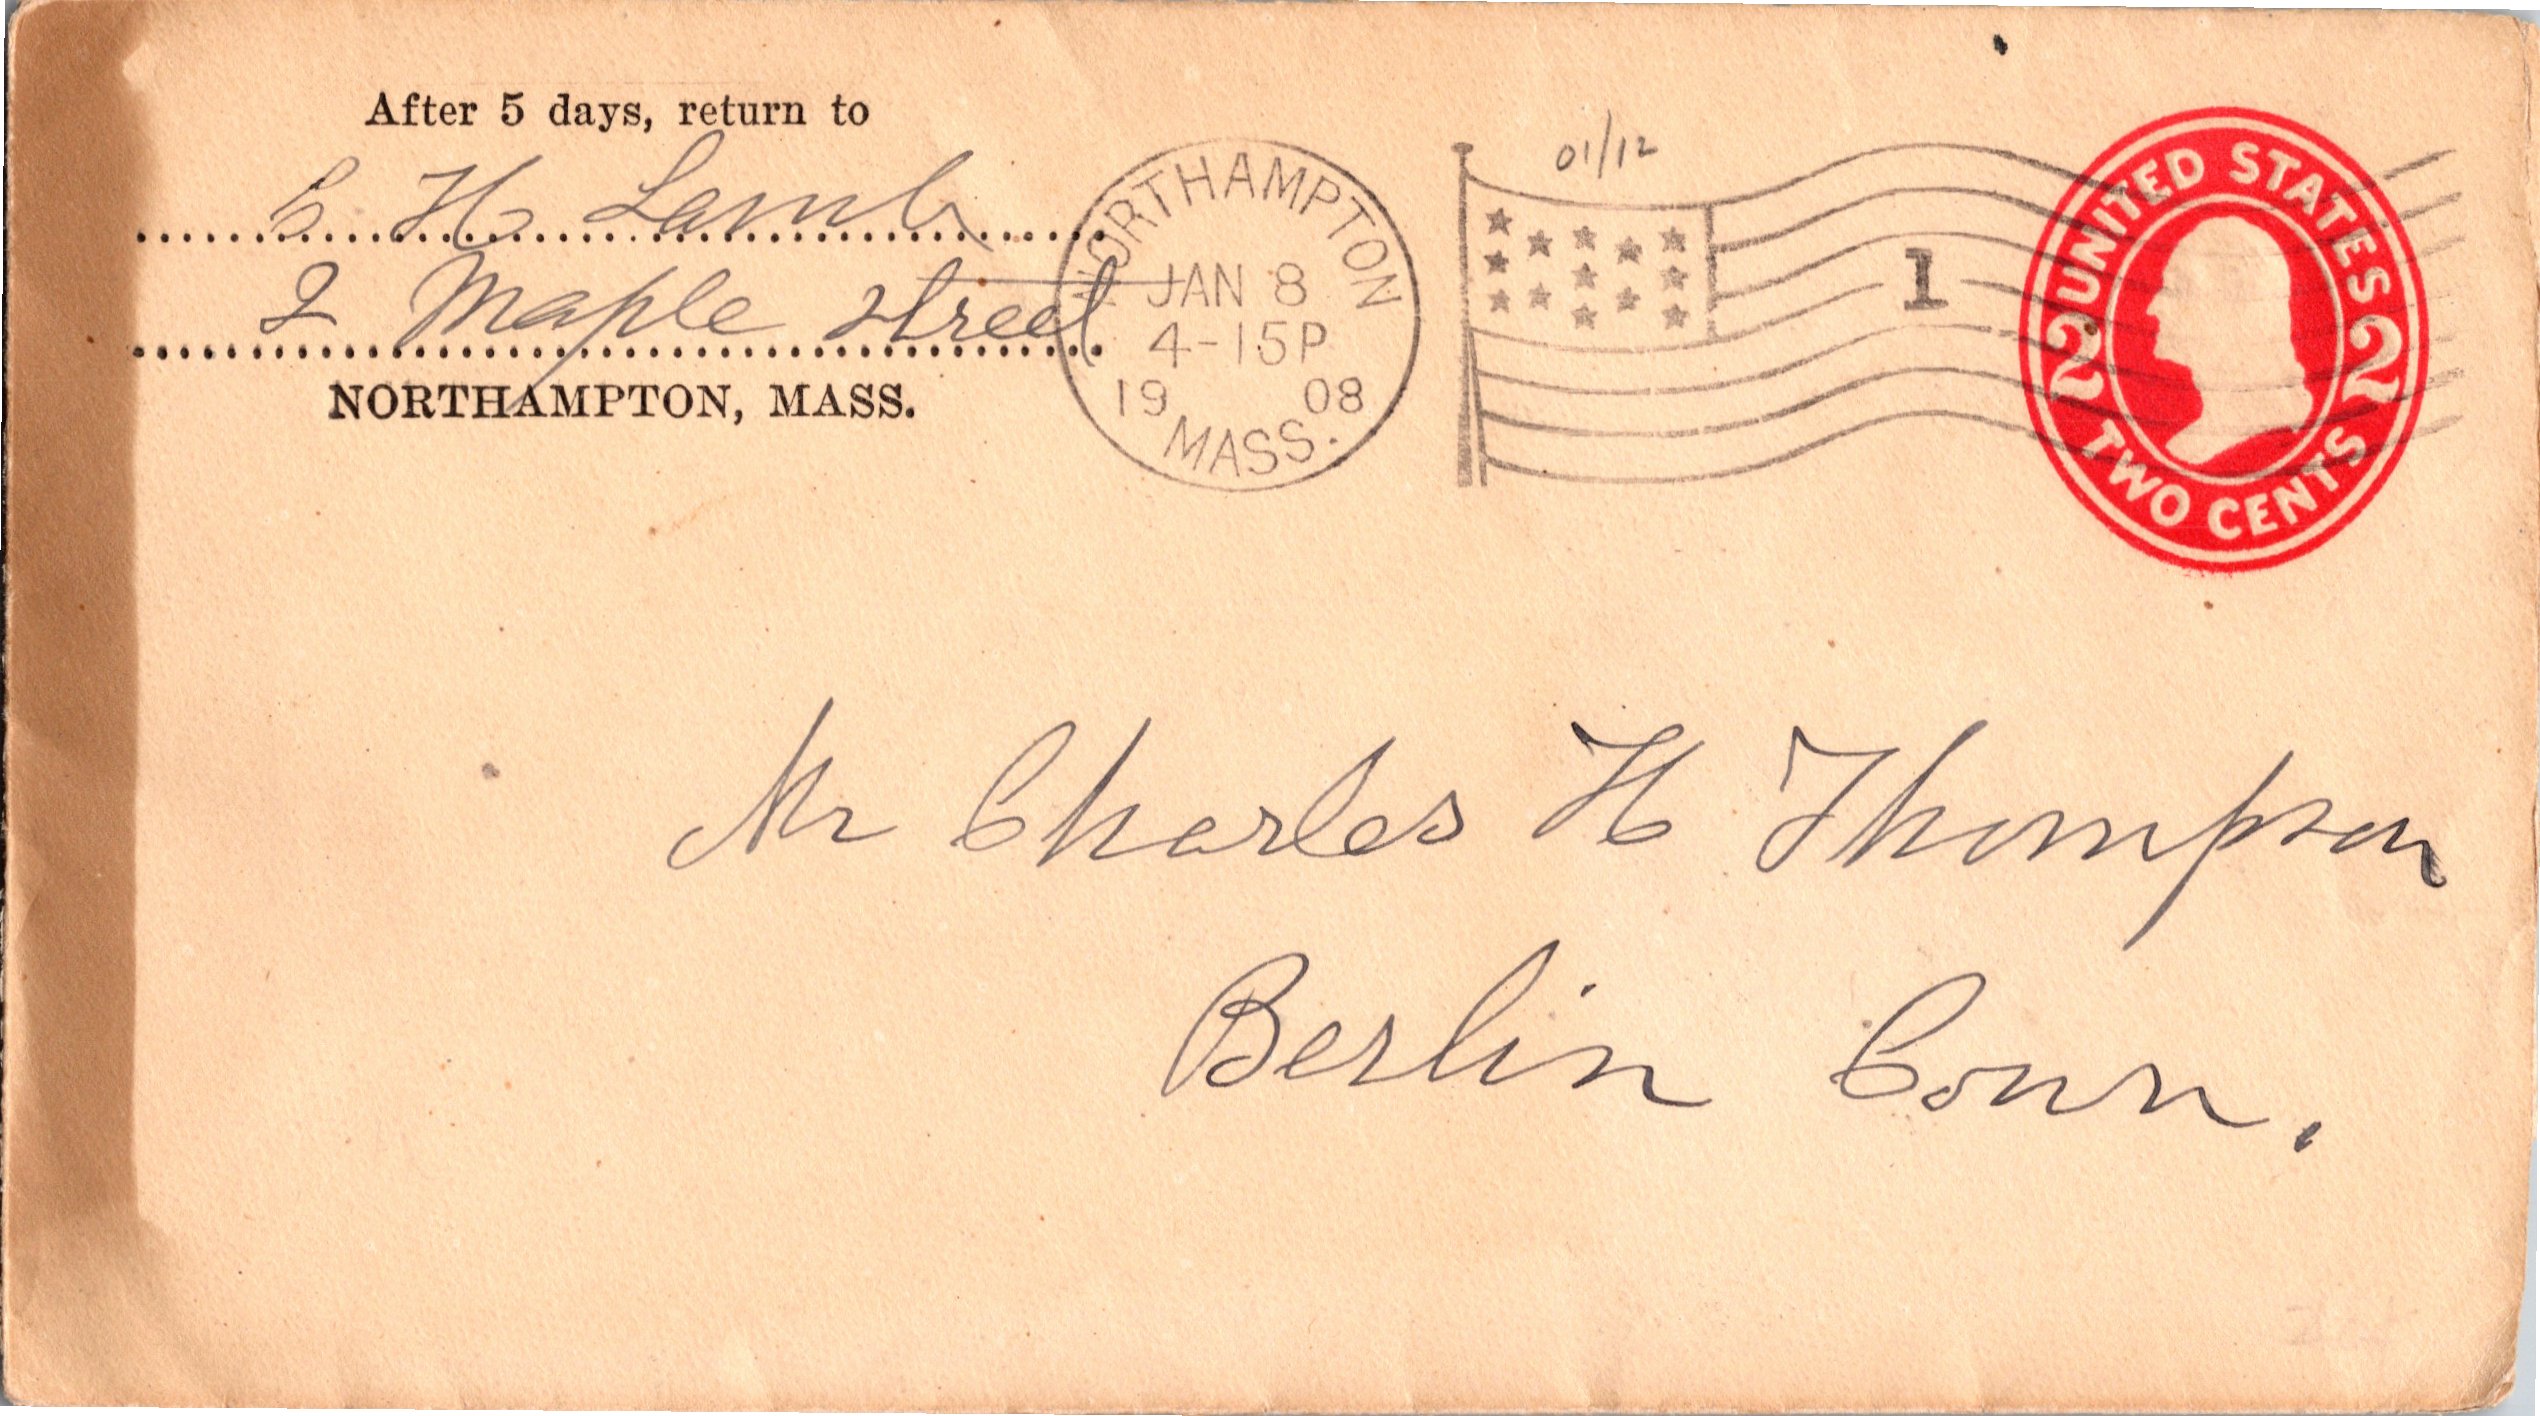 After 5 days, return to
C H Lamb
2 Maple Street
NORTHAMPTON, MASS.
NORTHAMPTON
JAN 8
4-15P
19 08
MASS.
01/12
1
UNITED STATES
2 2
TWO CENTS
Mr Charles H Thompson
Berlin Conn.